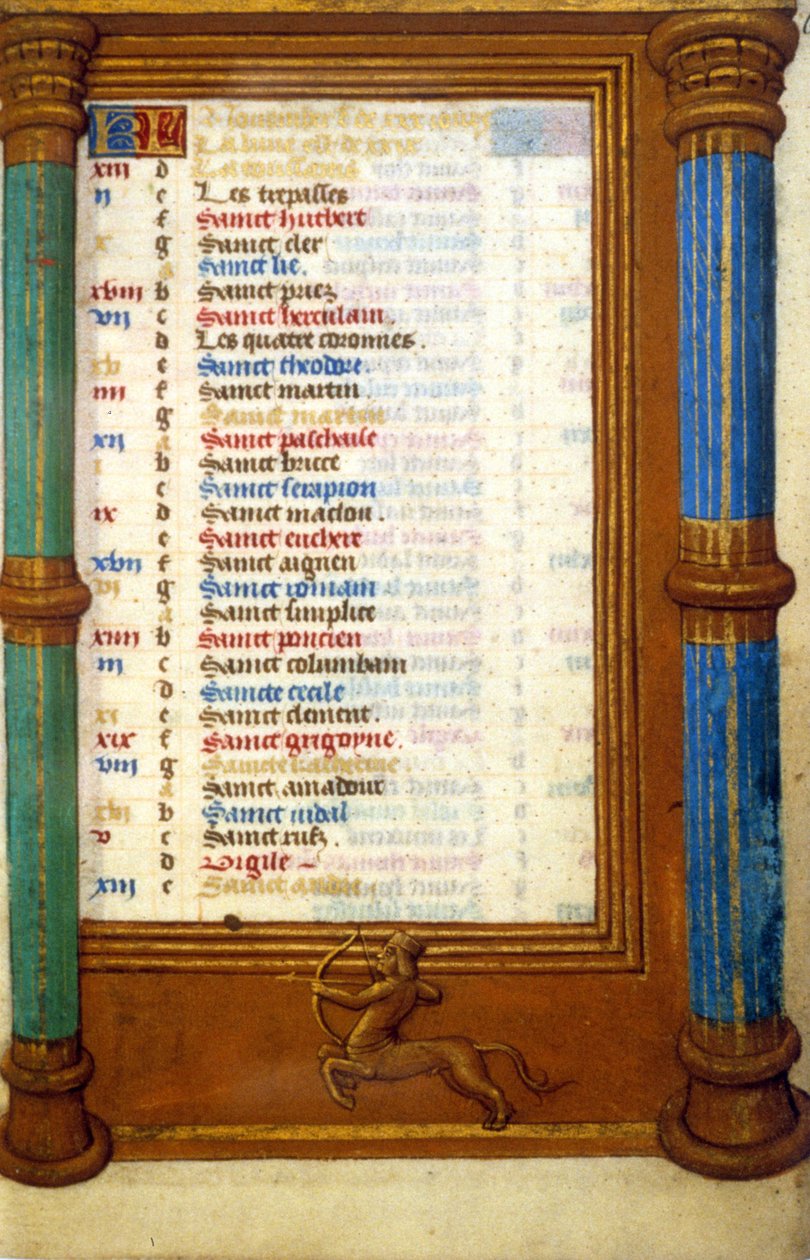 KL Novembre a de xxx iours
La lune et de xxix
xiii d La toussains
ii e Les trepasses
f Sainct hubert
x g Sainct cler
a Sainct lie.
xviii b Sainct priez
vii c Sainct herculain.
d Les quatre coronnes.
xv e Sainct theodore.
iiii f Sainct martin
g Sainct martin
xii a Sainct paschaise
i b Sainct bricce
c Sainct serapion
ix d Sainct maclou.
e Sainct euchere
xvii f Sainct aignen
vi g Sainct romain
a Sainct simplice
xiiii b Sainct poncien
iii c Sainct columbain
d Saincte cecile
xi e Sainct clement.
xix f Sainct grigoyne.
viii g Saincte katherine
a Sainct amadour
xvi b Sainct vidal
v c Sainct rufz.
d Vigile
xiii e Sainct andre